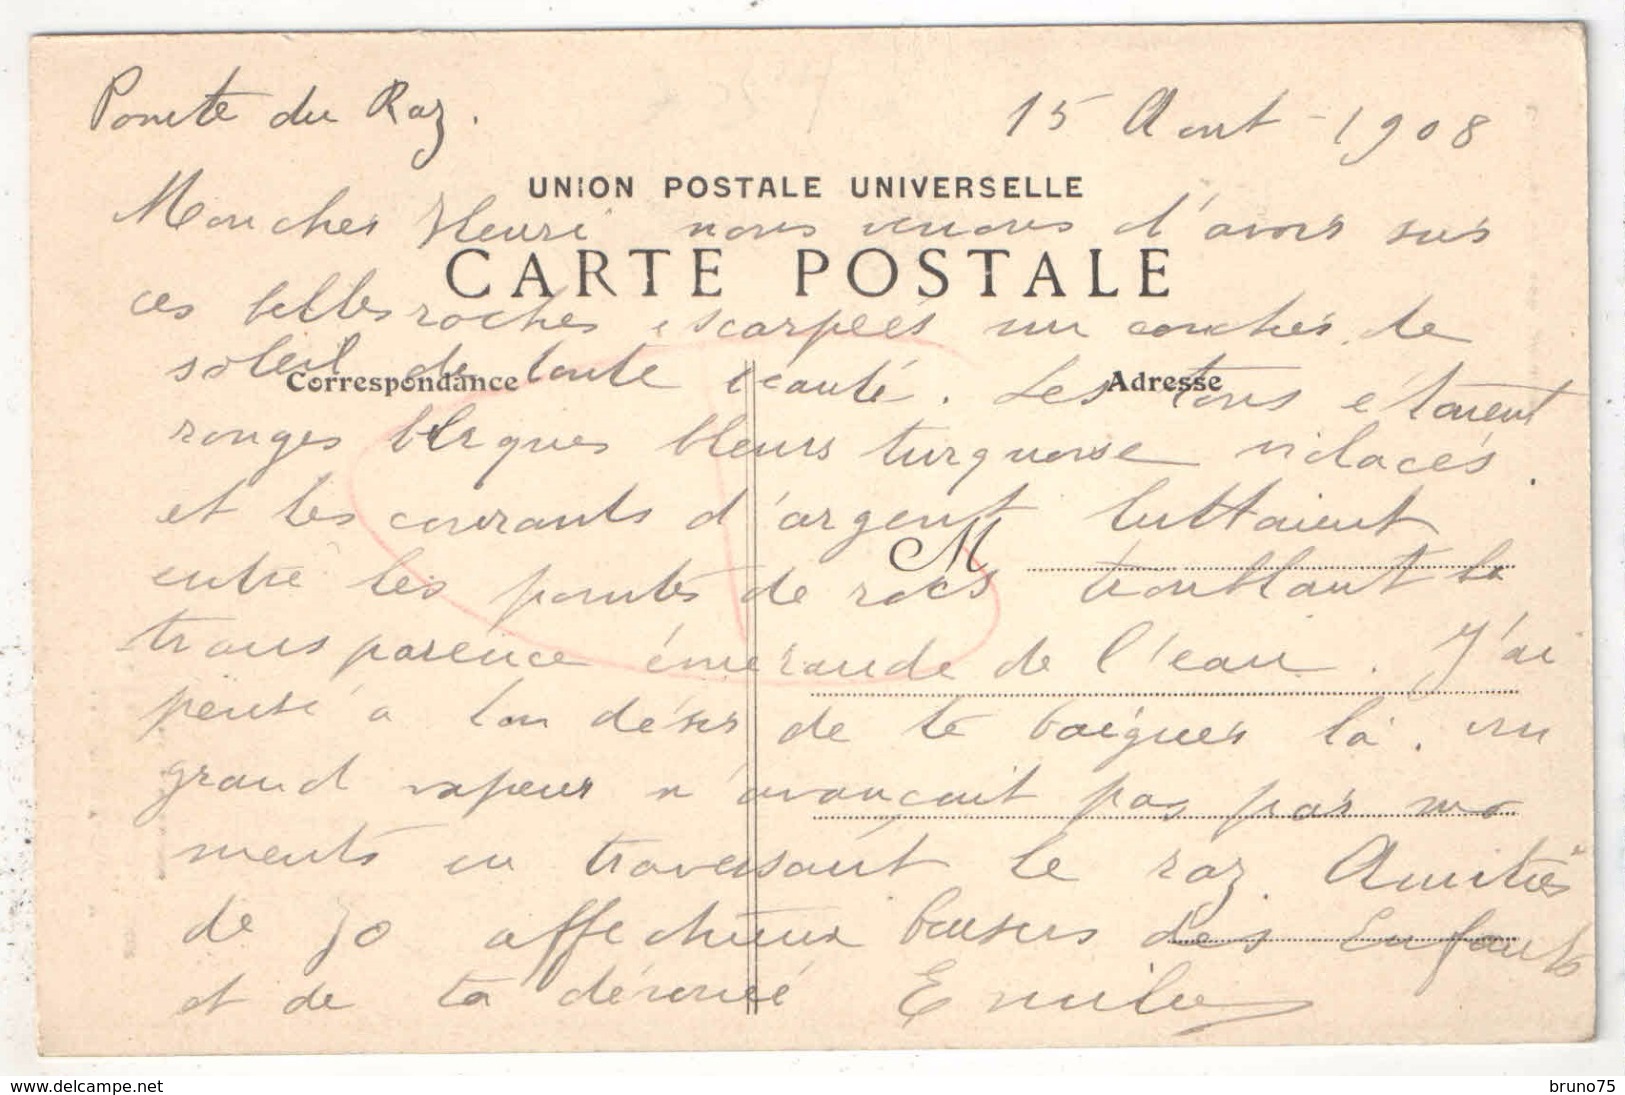 Pointe du Raz.
15 Aout - 1908
UNION POSTALE UNIVERSELLE
Mon cher Henri nous venons d'avoir sur
CARTE POSTALE
ces belles roches escarpées un coucher de
soleil de toute beauté. Les tons étaient
Correspondance
Adresse
rouges bleus turquoise violacés.
et les courants d'argent luttaient
M
entre les pointes de rocs troublant la
transparence émeraude de l'eau. J'ai
pensé à ton désir de te baigner là. un
grand vapeur n'avançait pas par mo
ments en traversant le raz. Amitiés
de Jo affectueux baisers des Enfants
et de ta dévouée Emilie
www.delcampe.net
bruno75